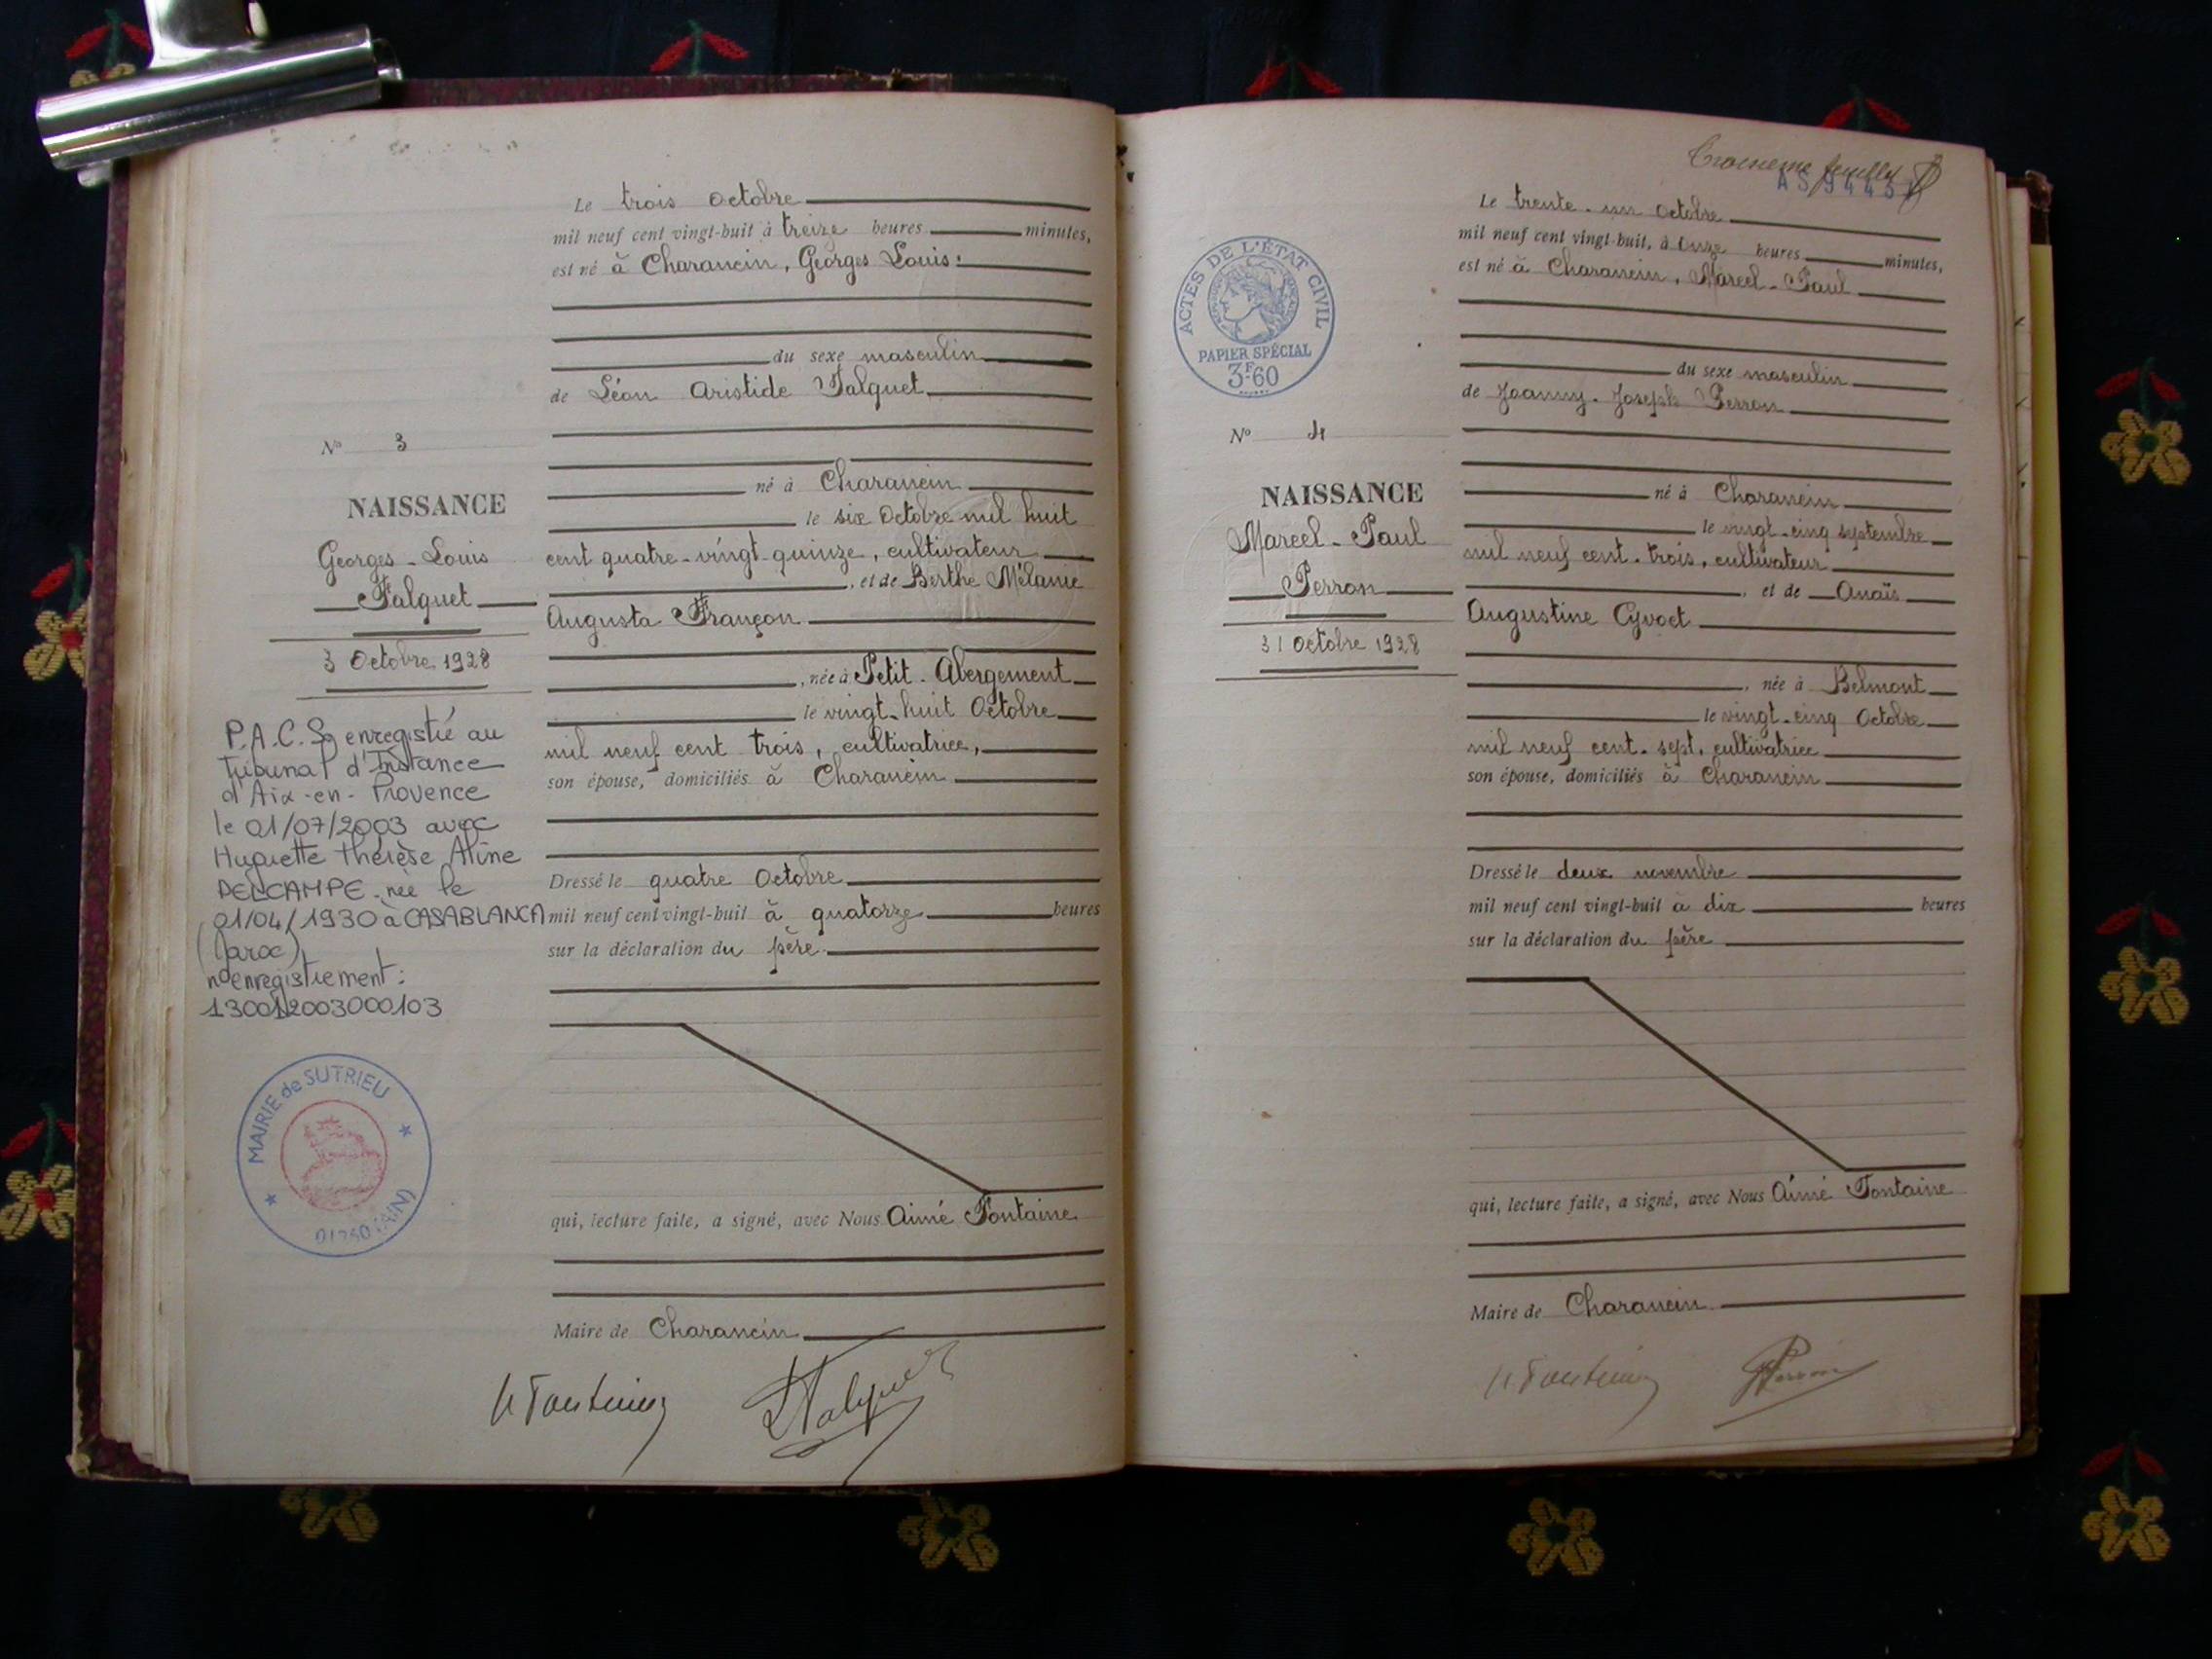 Le trois Octobre
mil neuf cent vingt-huit à treize heures minutes,
est né à Charancin, Georges Louis.
du sexe masculin
de Léon Aristide Falquet
N° 3
né à Charancin
NAISSANCE
le six Octobre mil huit
Georges-Louis
cent quatre-vingt-quinze, cultivateur
Falquet
, et de Berthe Mélanie
Augusta Françon
3 Octobre 1928
, née à Petit-Abergement
le vingt-huit Octobre
mil neuf cent trois, cultivatrice,
son épouse, domiciliés à Charancin
P.A.C.S enregistré au
Tribunal d'Instance
d'Aix-en-Provence
le 01/07/2003 avec
Huguette Thérèse Aline
DELCAMPE née le
01/04/1930 à CASABLANCA
(Maroc)
n° enregistrement:
130012003000103
Dressé le quatre Octobre
mil neuf cent vingt-huit à quatorze heures
sur la déclaration du père
MAIRIE de SUTRIEU
01260 (AIN)
qui, lecture faite, a signé, avec Nous Aimé Fontaine
Maire de Charancin
A Fontaine
L Falquet
Troisième feuillet
Le trente-un Octobre
mil neuf cent vingt-huit, à onze heures minutes,
est né à Charancin, Marcel-Paul
ACTES DE L'ÉTAT CIVIL
PAPIER SPÉCIAL
3F60
du sexe masculin
de Joanny-Joseph Perron
N° 4
né à Charancin
NAISSANCE
le vingt-cinq septembre
Marcel-Paul
mil neuf cent-trois, cultivateur
Perron
, et de Anaïs
Augustine Cyvoct
31 Octobre 1928
, née à Belmont
le vingt-cinq Octobre
mil neuf cent-sept, cultivatrice
son épouse, domiciliés à Charancin
Dressé le deux novembre
mil neuf cent vingt-huit à dix heures
sur la déclaration du père
qui, lecture faite, a signé, avec Nous Aimé Fontaine
Maire de Charancin
A. Fontaine
Perron